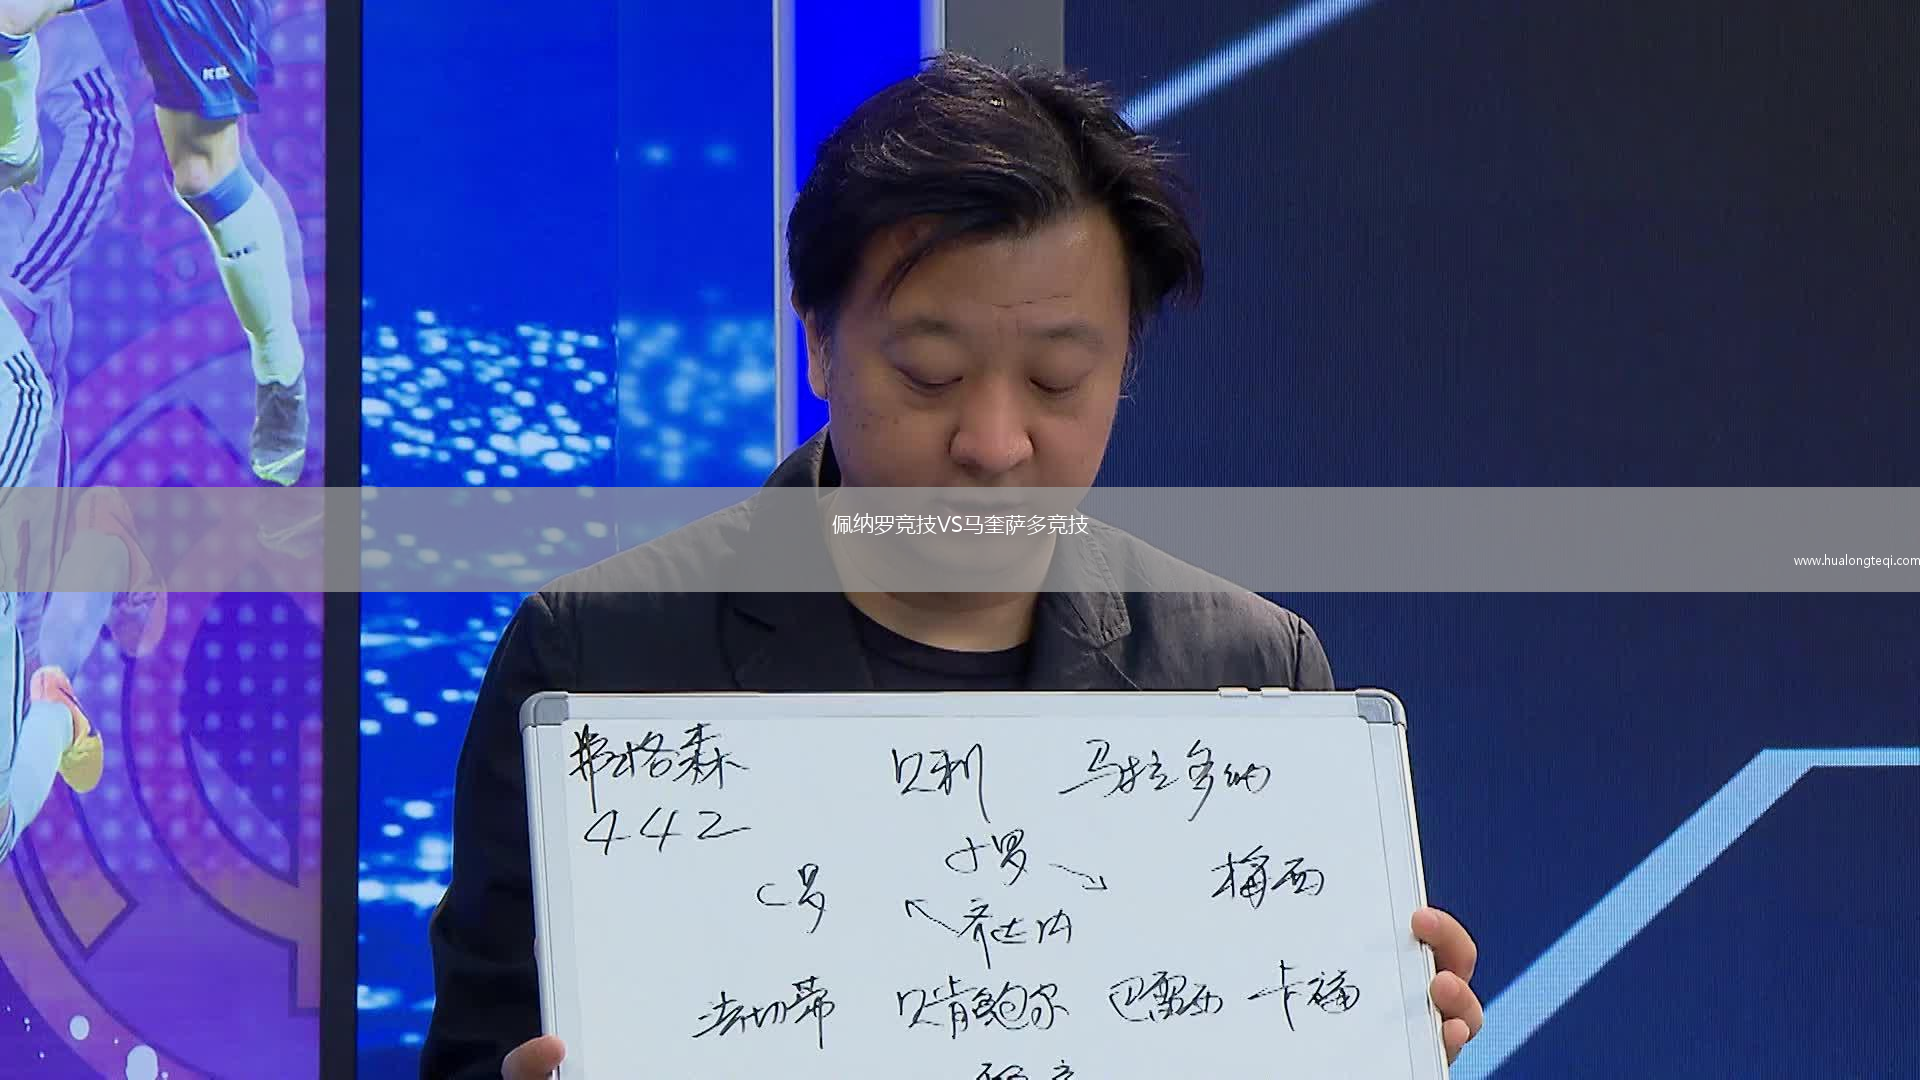 佩纳罗竞技VS马奎萨多竞技
www.hualongteqi.com
弗格森 贝利 马拉多纳
442
小罗
C罗 梅西
齐达内
法切蒂 贝肯鲍尔 巴雷西 卡福